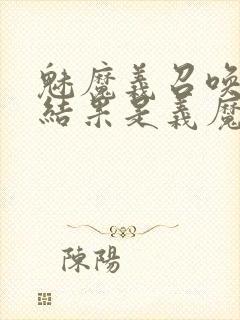 魅魔義召喚
結果是義魔
陳陽